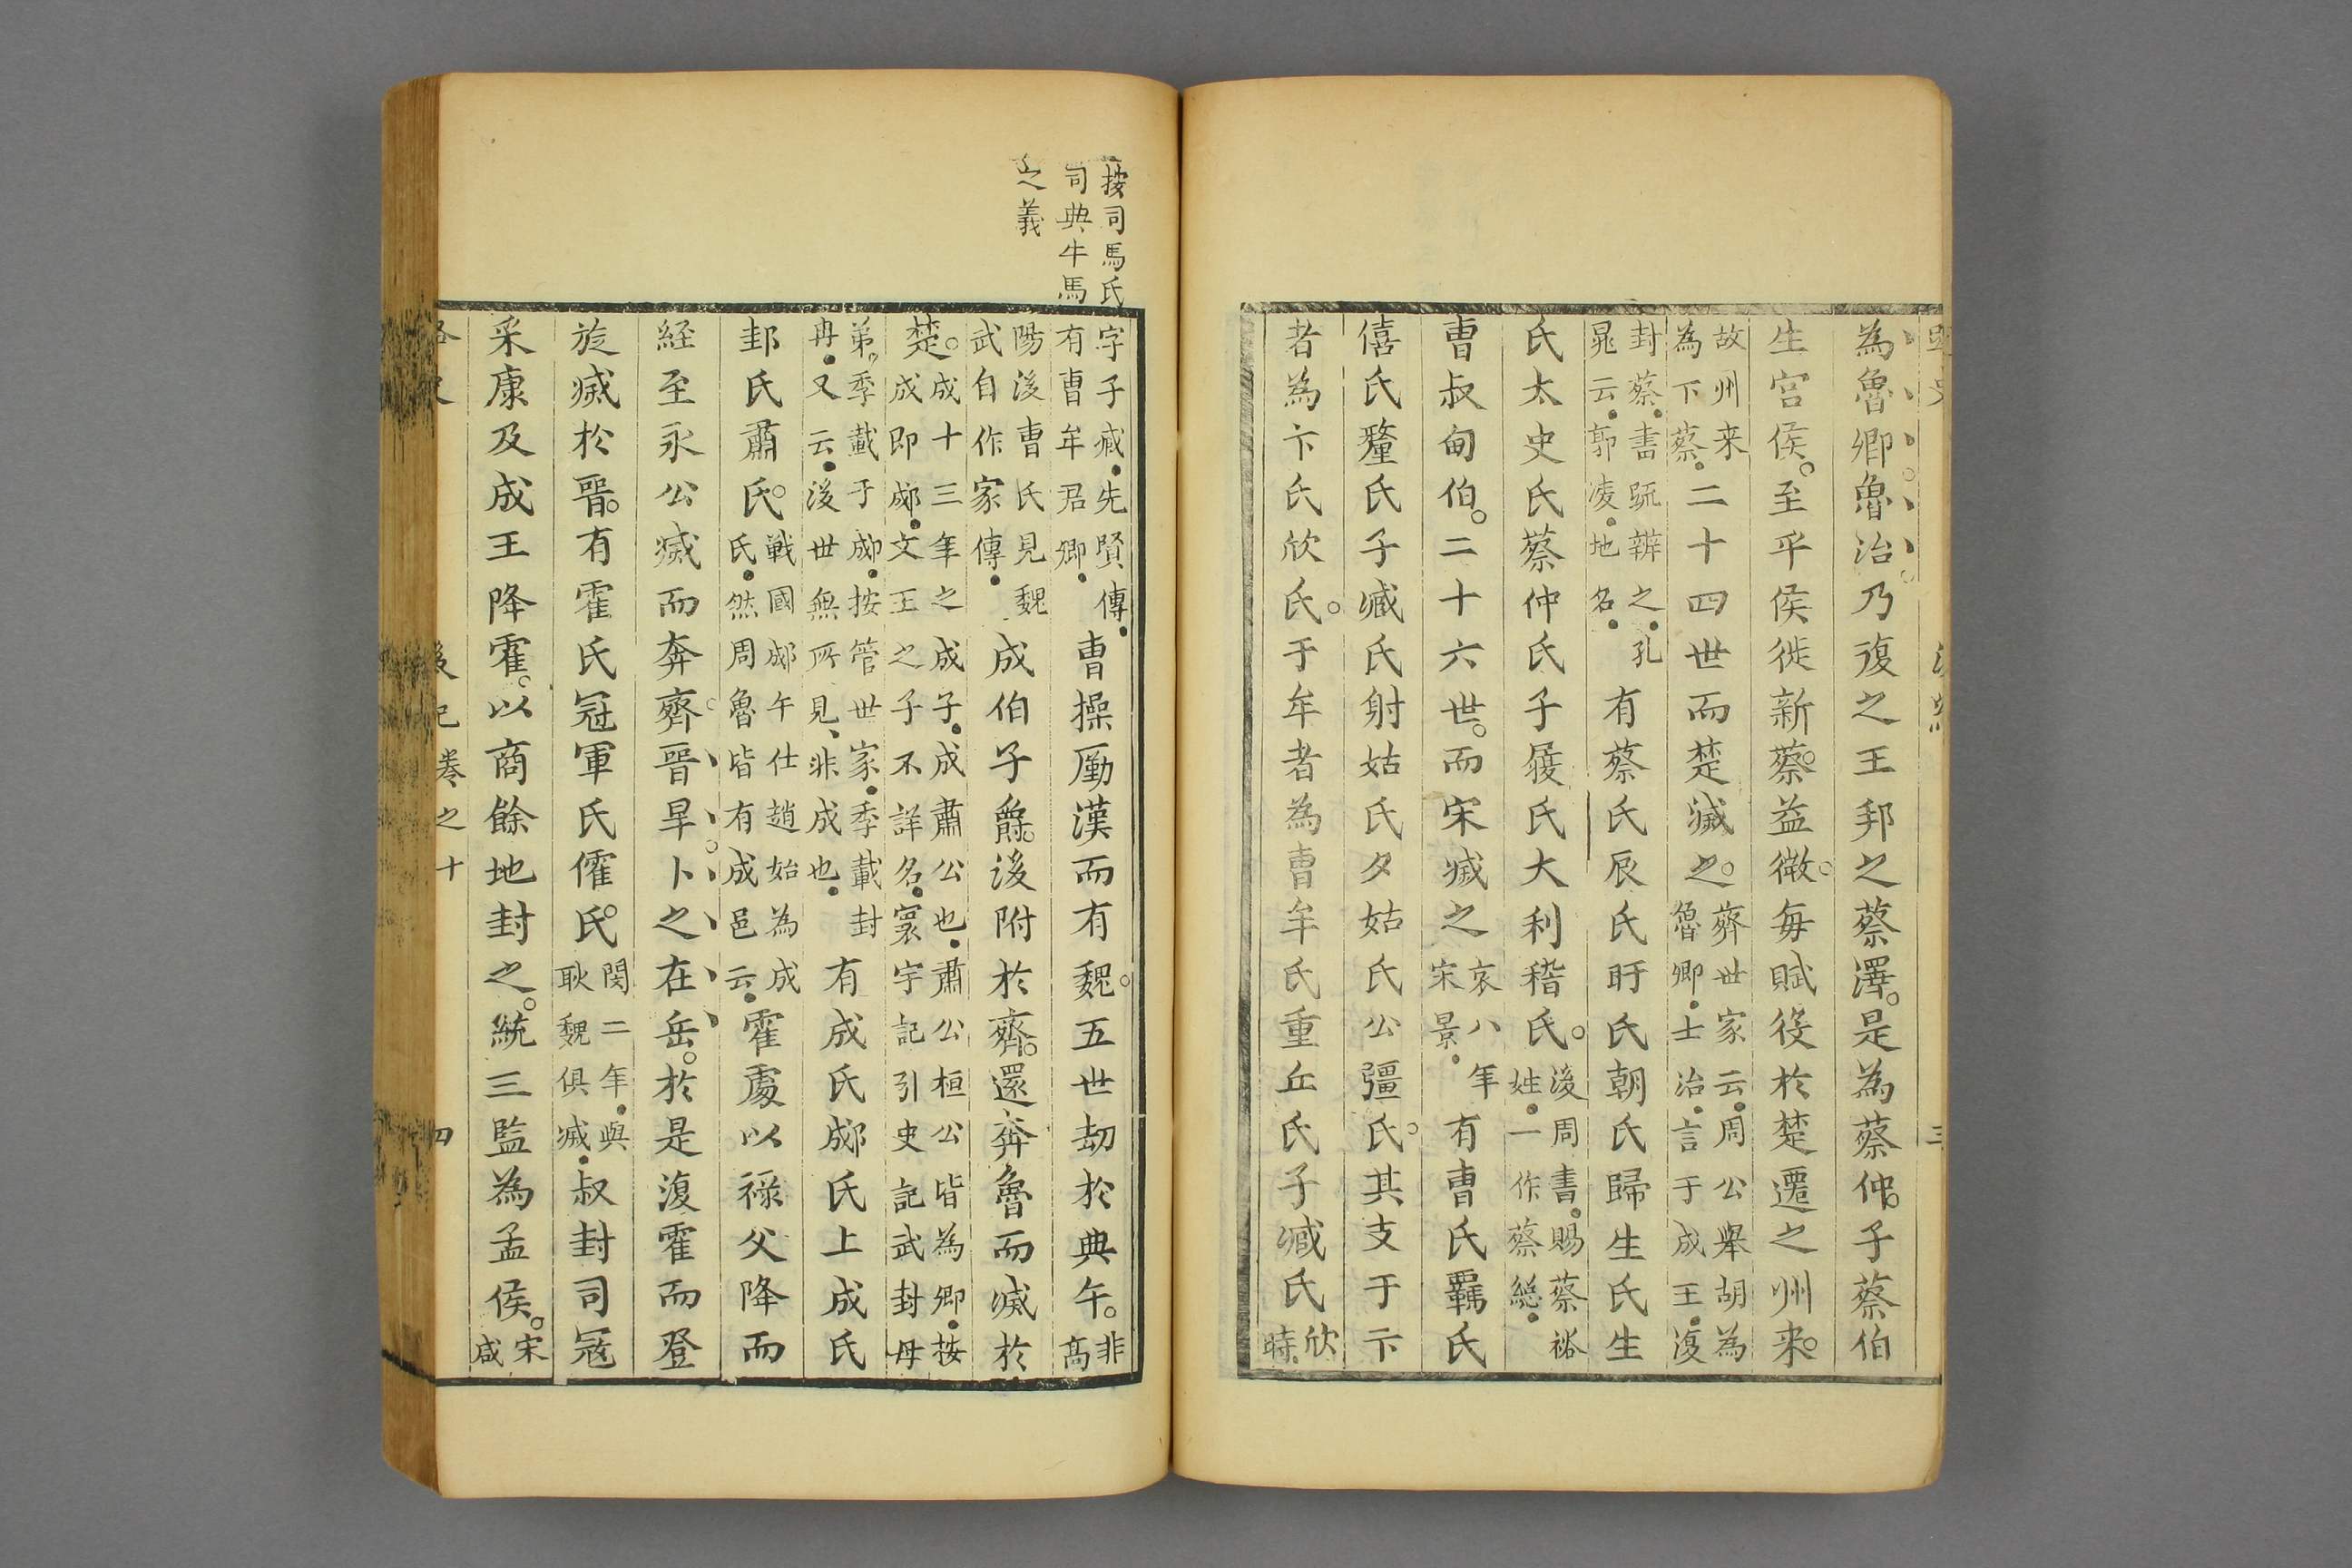 為魯卿魯治乃復之王邦之蔡澤是為蔡仲子蔡伯
生宮侯至平侯徙新蔡益微每賦役於楚遷之州来
故州来為下蔡二十四世而楚滅之齊世家云周公舉胡為魯卿士治言于成王復
封蔡書䟽辨之孔晁云郭凌地名有蔡氏辰氏旴氏朝氏歸生氏生
氏太史氏蔡仲氏子履氏大利稽氏後周書賜蔡裕姓一作蔡緫
曹叔甸伯二十六世而宋滅之哀八年宋景有曹氏羈氏
僖氏釐氏子臧氏射姑氏夕姑氏公彊氏其支于卞
者為卞氏欣氏于牟者為曹牟氏重丘氏子臧氏欣時
按司馬氏
司典牛馬
之義
字子臧先賢傳有曹牟君卿曹操厲漢而有魏五世劫於典午非高
陽後曹氏見魏武自作家傳成伯子爵後附於齊還奔魯而滅於
楚成十三年之成子成肅公也肅公桓公皆為卿按成即郕文王之子不詳名寰宇記引史記武封母
弟季載于郕按管世家季載封冉又云後世無所見非成也有成氏郕氏上成氏
邽氏肅氏戰國郕午仕趙始為成氏然周魯皆有成邑云霍處以祿父降而
経至永公滅而奔齊晉旱卜之在岳於是復霍而登
旋滅於晉有霍氏冠軍氏傕氏閔二年與耿魏俱滅叔封司冦
采康及成王降霍以商餘地封之統三監為孟侯宋咸
後紀卷之十 四